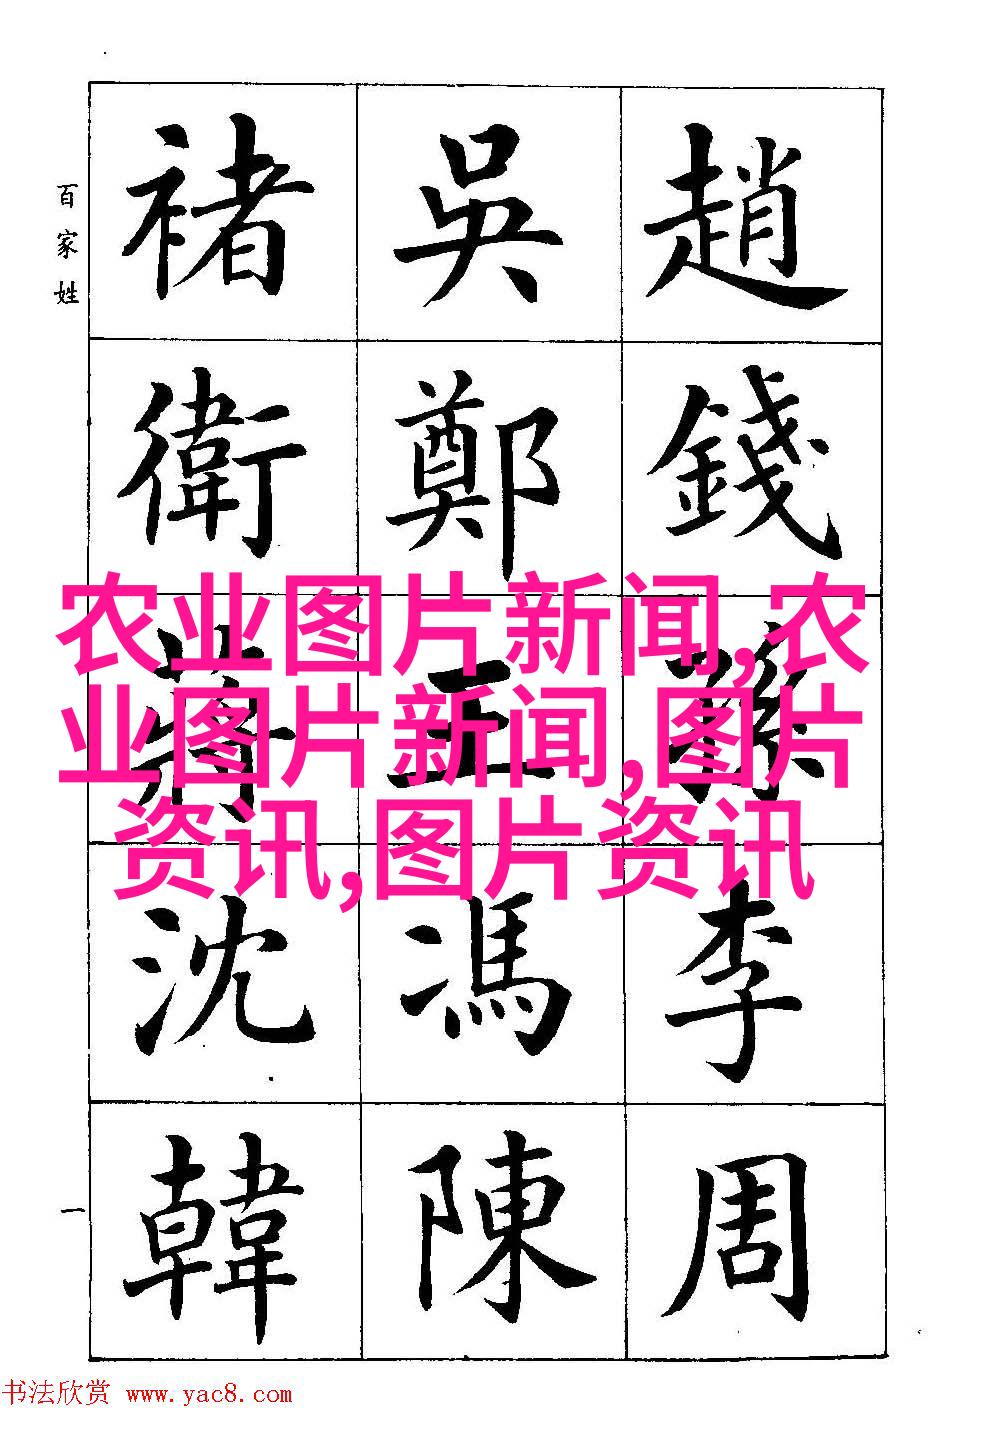 百家姓
趙錢孫李周
吳鄭王馮陳
褚衛蔣沈韓
一
农业图片新闻,农
业图片新闻,图片
资讯,图片资讯
书法欣赏 www.yac8.com